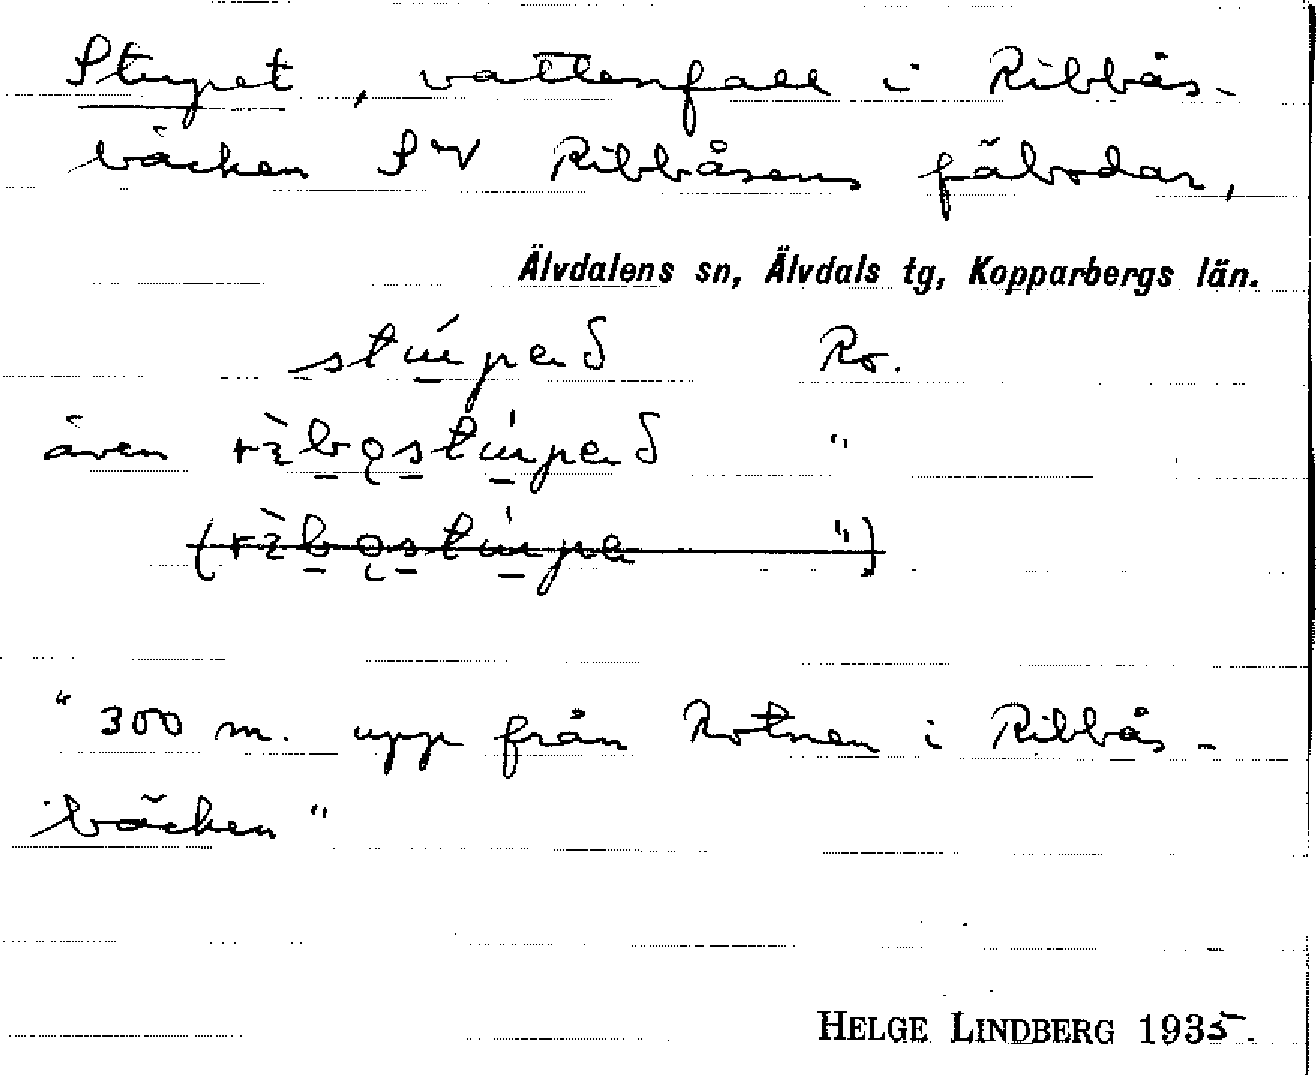 Stupet, vattenfall i Ribbås-
bäcken SV Ribbåsens fäbodar,
Älvdalens sn, Älvdals tg, Kopparbergs län.
Ro.
även "
")
"300 m. upp från Rotnen i Ribbås-
bäcken"
HELGE LINDBERG 1935.